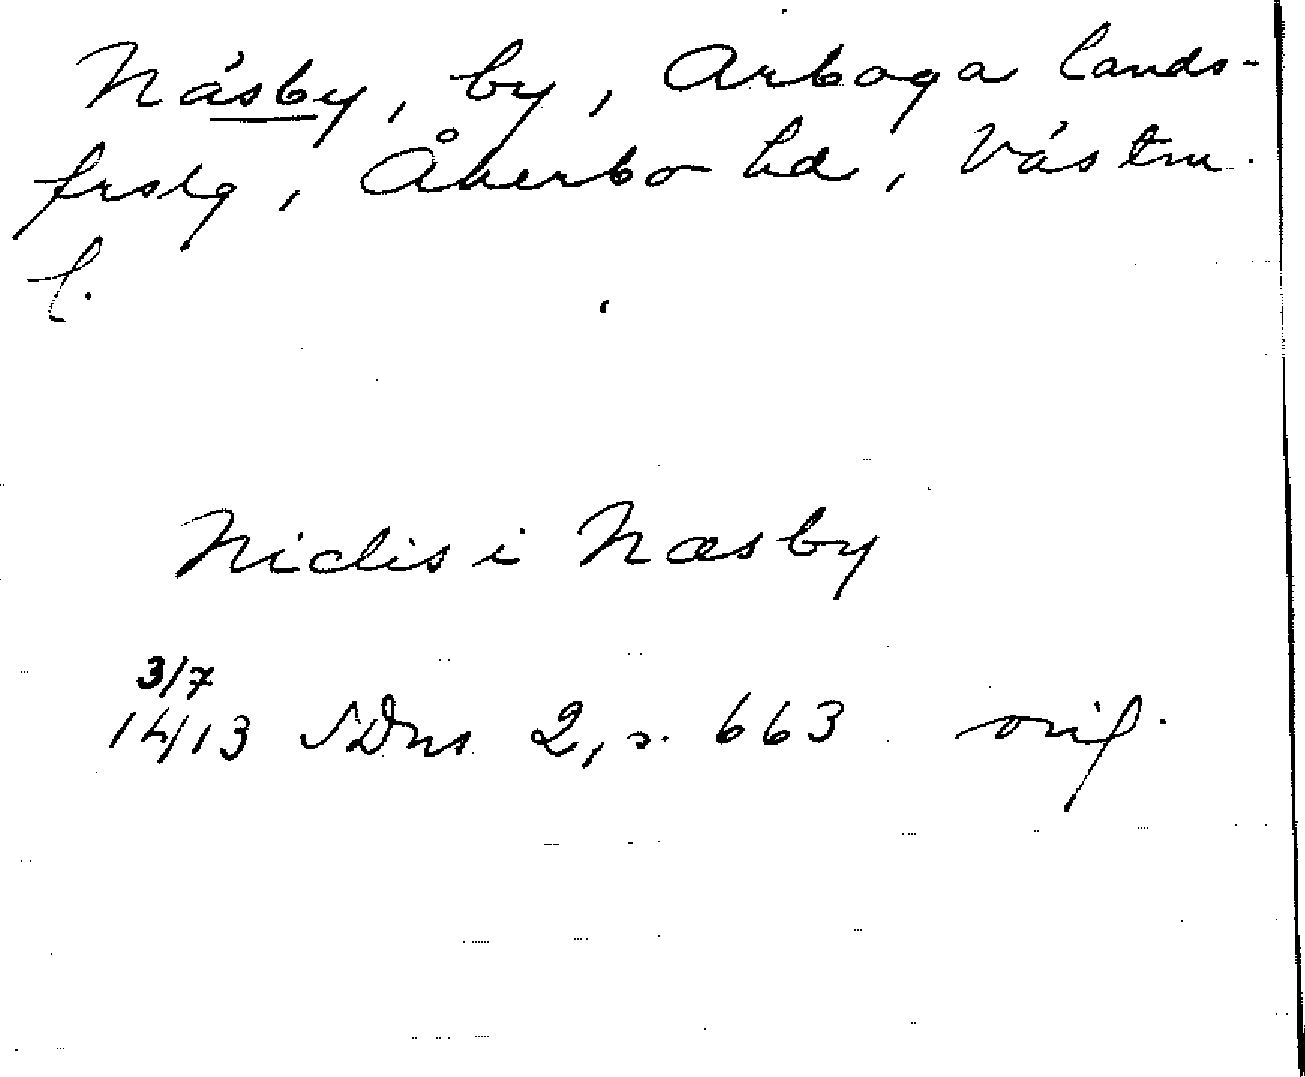 Näsby, by, Arboga lands-
frslg, Åkerbo hd, Västm.
l.
Niclis i Næsby
3/7
1413 SDns 2, s. 663 orig.